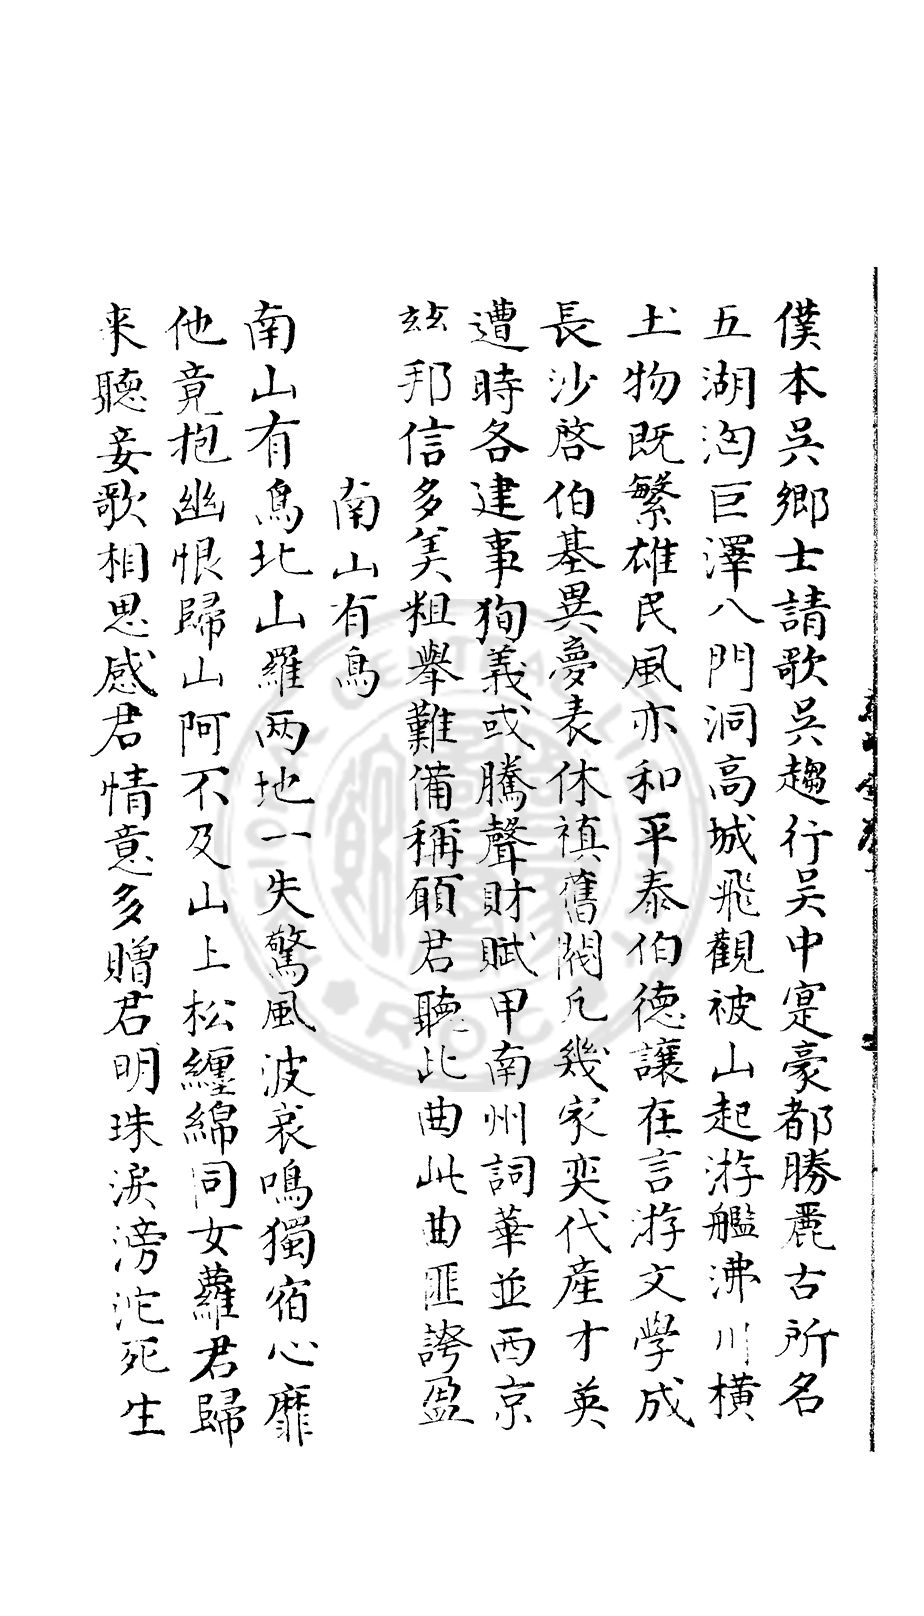 僕本吳鄉士請歌吳趨行吳中寔豪都勝麗古所名
五湖洶巨澤八門洞高城飛觀被山起游艦沸川橫
土物既繁雄民風亦和平泰伯德讓在言游文學成
長沙啓伯基異夢表休禎舊閥凡幾家奕代產才英
遭時各建事狥義或騰聲財賦甲南州詞華並西京
玆邦信多美粗舉難備稱願君聽此曲此曲匪誇盈
南山有鳥
南山有鳥北山羅两地一失驚風波哀鳴獨宿心靡
他竟抱幽恨歸山阿不及山上松纏綿同女蘿君歸
来聽妾歌相思感君情意多贈君明珠淚滂沱死生